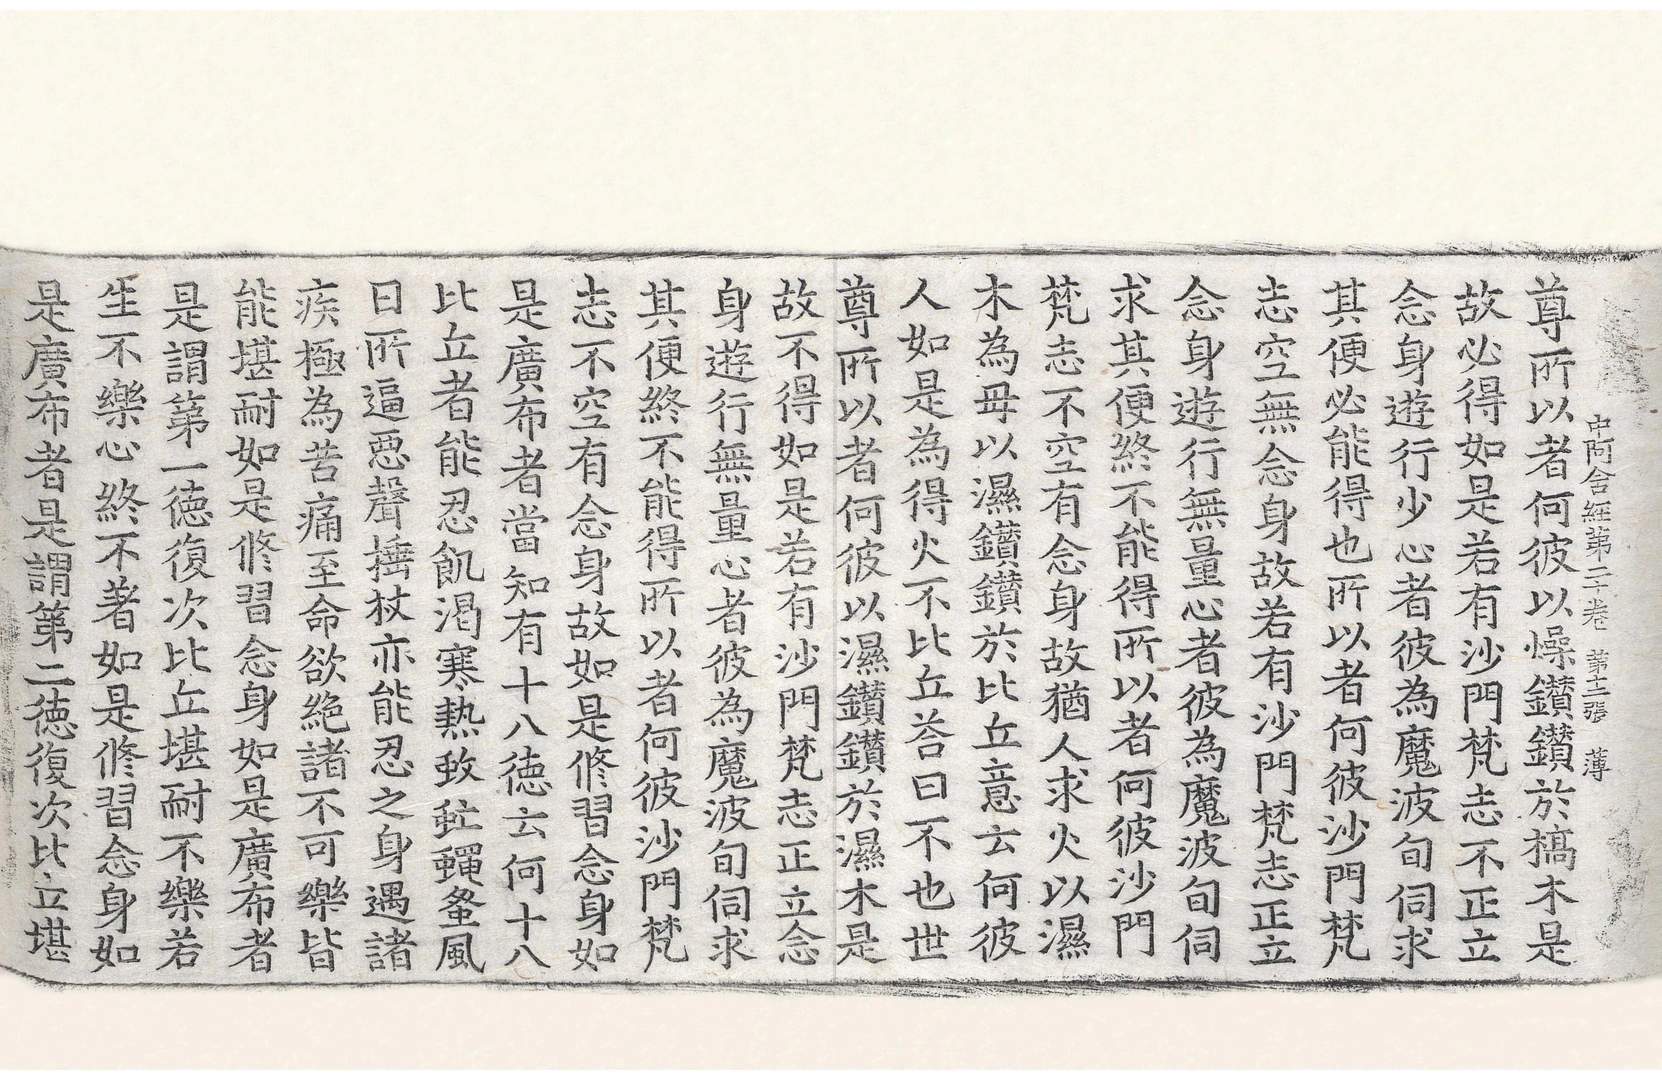 中阿含經第二十卷 第十二張 薄
尊所以者何彼以燥鑽鑽於槁木是
故必得如是若有沙門梵志不正立
念身遊行少心者彼為魔波旬伺求
其便必能得也所以者何彼沙門梵
志空無念身故若有沙門梵志正立
念身遊行無量心者彼為魔波旬伺
求其便終不能得所以者何彼沙門
梵志不空有念身故猶人求火以濕
木為毋以濕鑽鑽於比丘意云何彼
人如是為得火不比丘荅曰不也世
尊所以者何彼以濕鑽鑽於濕木是
故不得如是若有沙門梵志正立念
身遊行無量心者彼為魔波旬伺求
其便終不能得所以者何彼沙門梵
志不空有念身故如是修習念身如
是廣布者當知有十八德云何十八
比丘者能忍飢渴寒熱蚊䖟蠅蚤風
日所逼惡聲捶杖亦能忍之身遇諸
疾極為苦痛至命欲絕諸不可樂皆
能堪耐如是修習念身如是廣布者
是謂第一德復次比丘堪耐不樂若
生不樂心終不著如是修習念身如
是廣布者是謂第二德復次比丘堪